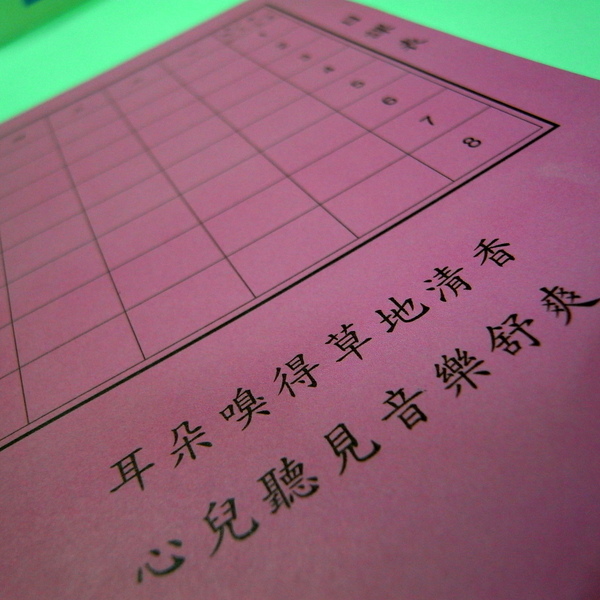 日課表
3
4
5
6
7
8
耳朵嗅得草地清香
心兒聽見音樂舒爽